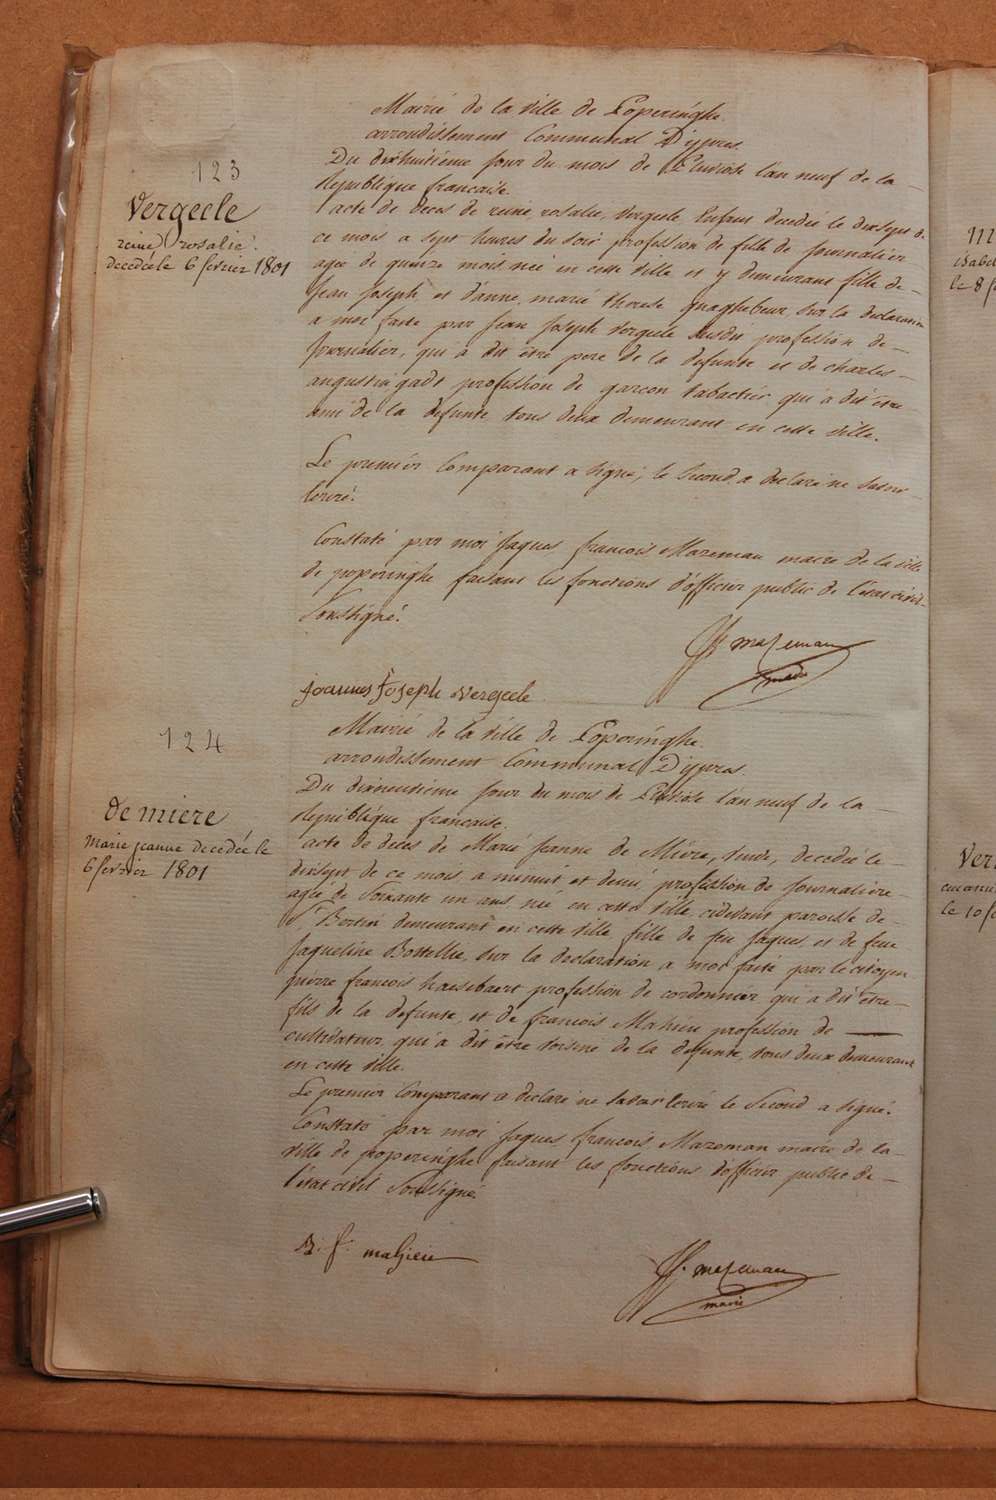 Mairié de la ville de Poperinghe.
arrondissement Communal D'ypres.
123
Du dixhuitiéme jour du mois de Pluviose l'an neuf de la
Republique francaise
Vergecle
reine rosalie.
decedée le 6 fevrier 1801
l'acte de deces de reine, rosalie, Vergecle, Enfant decedée le dixsept de
ce mois a sept heures du soir profession de fille de Journalier
agée de quinze mois née en cette ville et y demeurant fille de
Jean Joseph et d'anne, marie therese quaghebeur, sur la declaration
a moi faite par Jean Joseph Vergecle susdit profession de
Journalier, qui a dit être pere de la defunte et de charles
augustin gadt profession de garcon tabactier qui a dit être
ami de la defunte, tous deux demeurant en cette ville.
Le premier Comparant a signé, le second a declaré ne savoir
Ecrire.
Constaté par moi Jaques francois Mazeman maire de la ville
de poperinghe faisant les fonctions d'officier public de l'état civil
Soussigné.
JJ mazeman
maire
Joannes Joseph vergecle
124
Mairié de la ville de Poperinghe.
arrondissement Communal D'ypres.
Du dixneuviéme jour du mois de Pluviose l'an neuf de la
Republique francaise.
de miere
marie jeanne decedée le
6 fevrier 1801
acte de deces de Marie Jeanne de Mière, veuve, decedée le
dixsept de ce mois a minuit et demi, profession de Journaliere
agée de Soixante un ans, née en cette ville, cidevant paroisse de
St Bertin demeurant en cette ville fille de feu Jaques, et de feue
Jaqueline Bottellie, sur la declaration a moi faite par le citoyen
pierre francois haesebaert profession de cordonnier qui a dit être
fils de la defunte, et de francois Mahieu profession de
cultivateur, qui a dit être voisin de la defunte, tous deux demeurant
en cette ville.
Le premier Comparant a declaré ne savoir Ecrire le Second a signé.
Constaté par moi Jaques francois Mazeman maire de la
ville de poperinghe faisant les fonctions d'officier public de
l'état civil Soussigné
B. f. mahieu
JJ. mazeman
maire